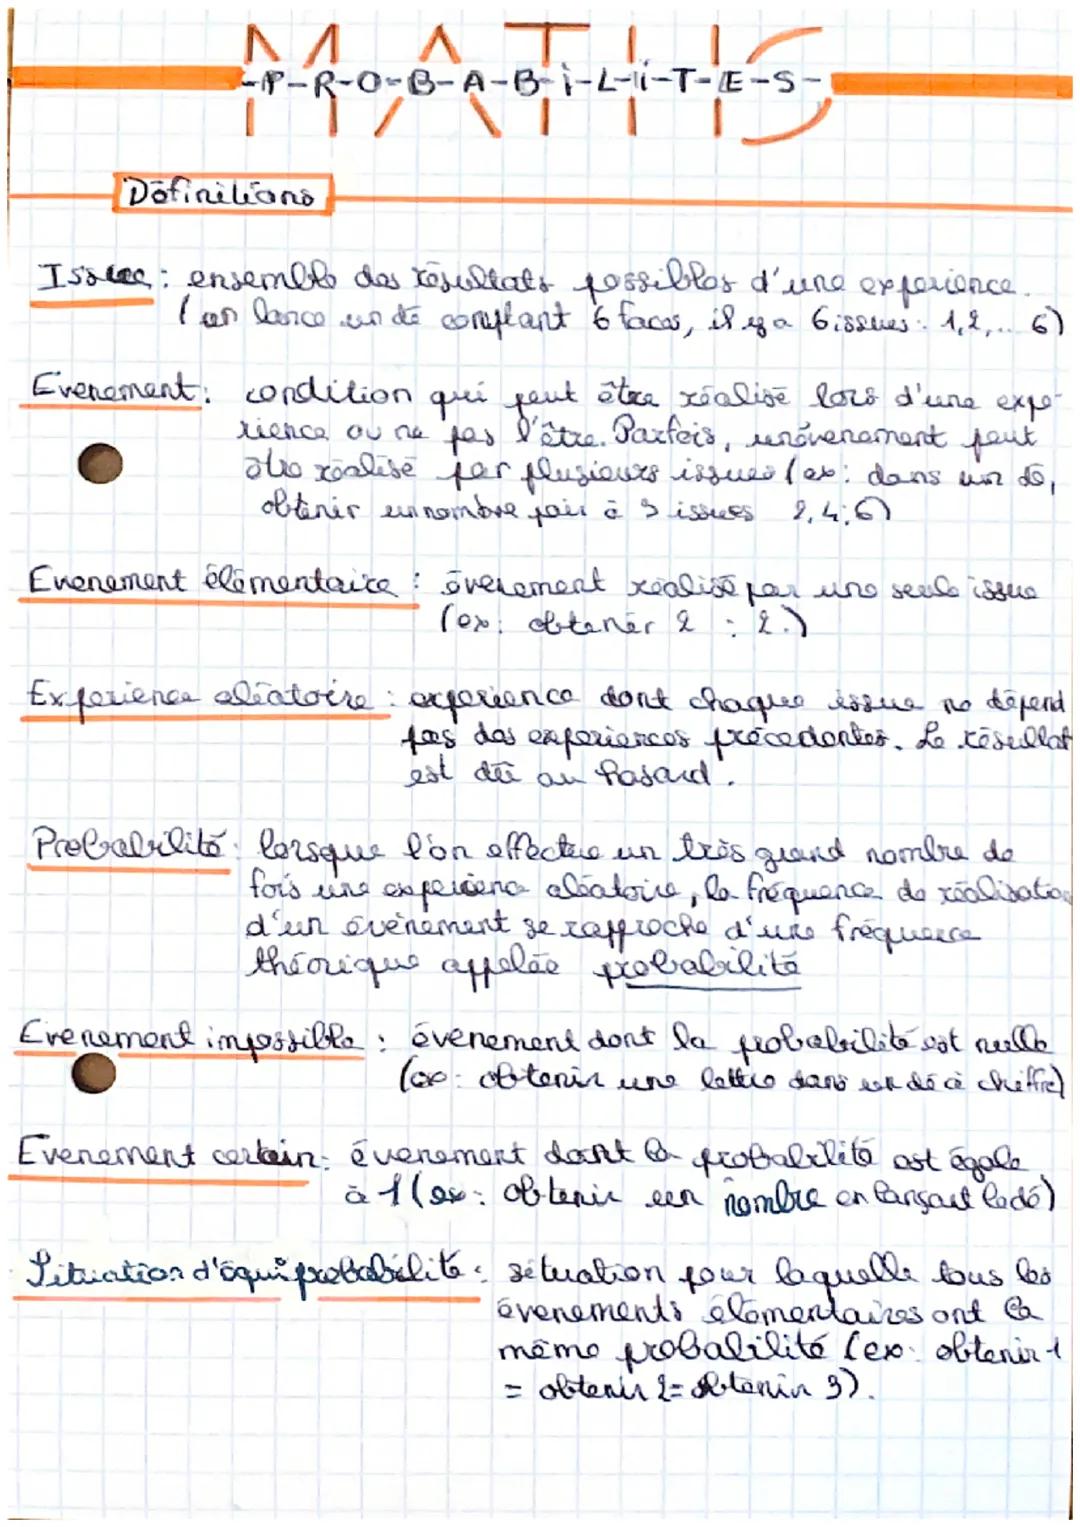 MATHS
-P-R-O-B-A-B-i-L-i-T-E-S-
Définitions
Issue : ensemble des résultats possibles d'une experience.
(on lance un dé comptant 6 faces, il y a 6 issues : 1,2,... 6)
Evenement : condition qui peut être réalisé lors d'une expe-
rience ou ne pas l'être. Parfois, un évenement peut
être réalisé par plusieurs issues (ex : dans un dé,
obtenir un nombre pair à 3 issues 2,4,6)
Evenement élémentaire : évenement réalisé par une seule issue
(ex : obtenir 2 : 2.)
Experience aléatoire : experience dont chaque issue ne dépend
pas des experiences précedentes. Le résultat
est dû au hasard.
Probabilité : lorsque l'on effectue un très grand nombre de
fois une experience aléatoire, la fréquence de réalisation
d'un évènement se rapproche d'une fréquence
théorique appelée probabilité
Evenement impossible : évenement dont la probabilité est nulle
(ex : obtenir une lettre dans un dé à chiffre)
Evenement certain : évenement dont la probabilité est égale
à 1 (ex : obtenir un nombre en lançant le dé)
Situation d'équiprobabilité : situation pour laquelle tous les
évenements élémentaires ont la
même probabilité (ex : obtenir 1
= obtenir 2 = obtenir 3).